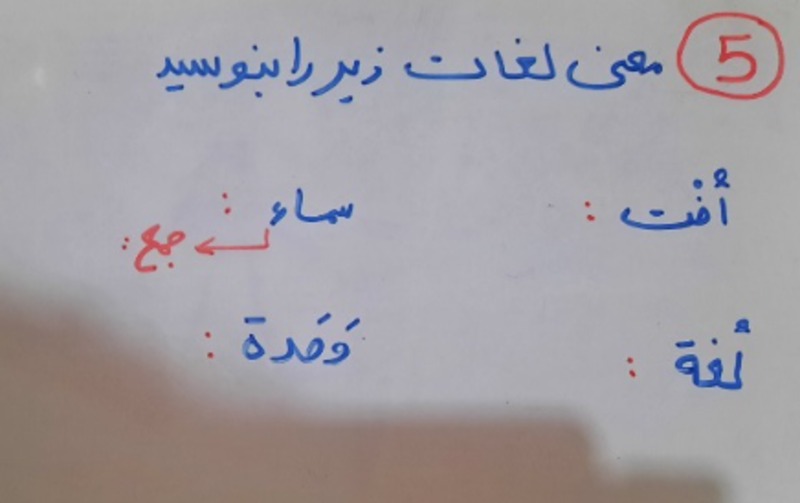 5 معنی لغات زیر را بنوسید
أُخْت : سماء :
جمع :
لُغة : وَحَدة :